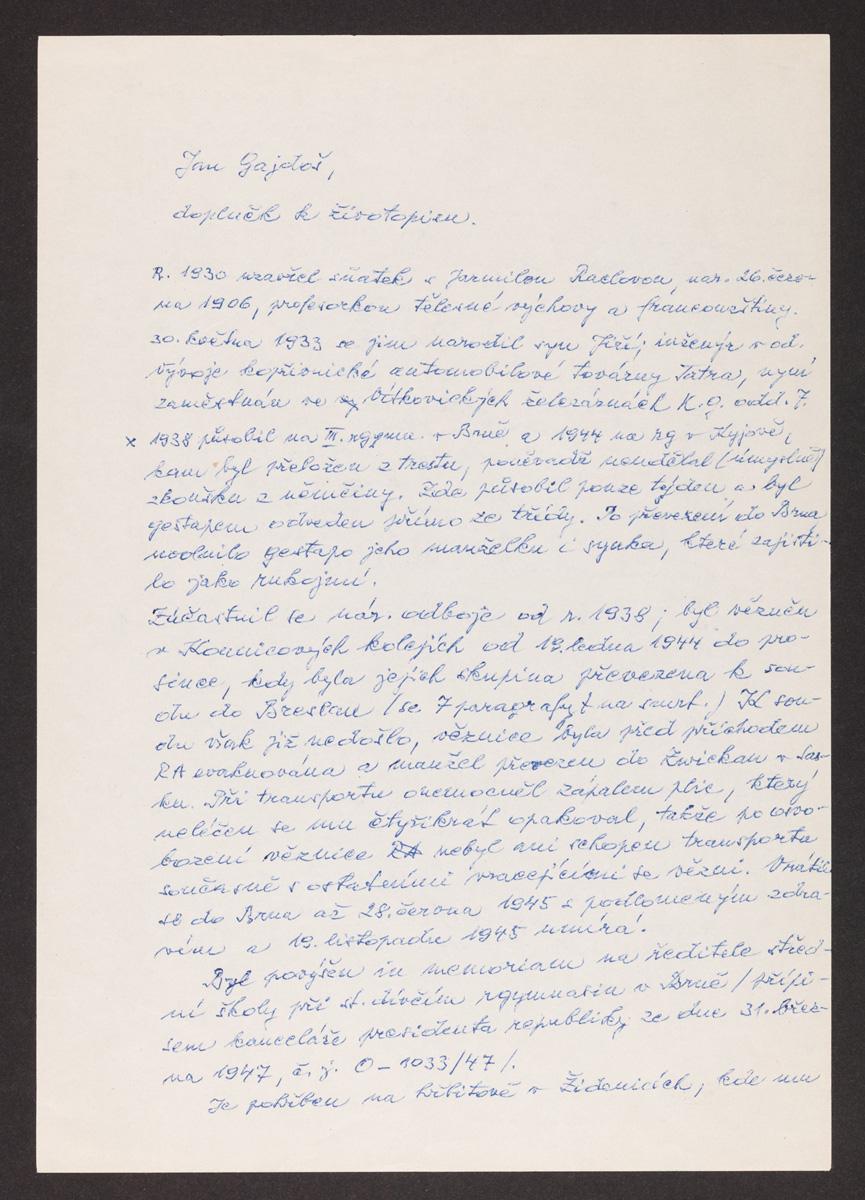 Jan Gajdoš,
doplněk k životopisu.
R. 1930 uzavřel sňatek s Jarmilou Raclovou, nar. 26. červ-
na 1906, profesorkou tělesné výchovy a francouzštiny.
30. května 1933 se jim narodil syn Jiří; inženýr v od.
vývoje kopřivnické automobilové továrny Tatra, nyní
zaměstnán ve Vítkovických železárnách K. G. odd. 7.
x 1938 působil na III. rgymn. v Brně a 1944 na rg v Kyjově,
kam byl přeložen z trestu, poněvadž neudělal (úmyslně)
zkoušku z němčiny. Zde působil pouze týden a byl
gestapem odveden přímo ze třídy. Po převezení do Brna
uvolnilo gestapo jeho manželku i synka, které zajisti-
lo jako rukojmí.
Zúčastnil se nár. odboje od r. 1938; byl vězněn
v Kounicových kolejích od 19. ledna 1944 do pro-
since, kdy byla jejich skupina převezena k sou-
du do Breslau (se 7 paragrafy na smrt.) K sou-
du však již nedošlo, věznice byla před příchodem
RA evakuována a manžel převezen do Zwickau v Sas-
ku. Při transportu onemocněl zápalem plic, který
neléčen se mu čtyřikrát opakoval, takže po osvo-
bození věznice RA nebyl ani schopen transportu
současně s ostatními vracejícími se vězni. Vrátil
se do Brna až 28. června 1945 s podlomeným zdra-
vím a 19. listopadu 1945 umírá.
Byl povýšen in memoriam na ředitele střed-
ní školy při st. dívčím rgymnasiu v Brně / přípi-
sem kanceláře presidenta republiky ze dne 31. břez-
na 1947, č. j. O-1033/47/.
Je pohřben na hřbitově v Židenicích, kde mu